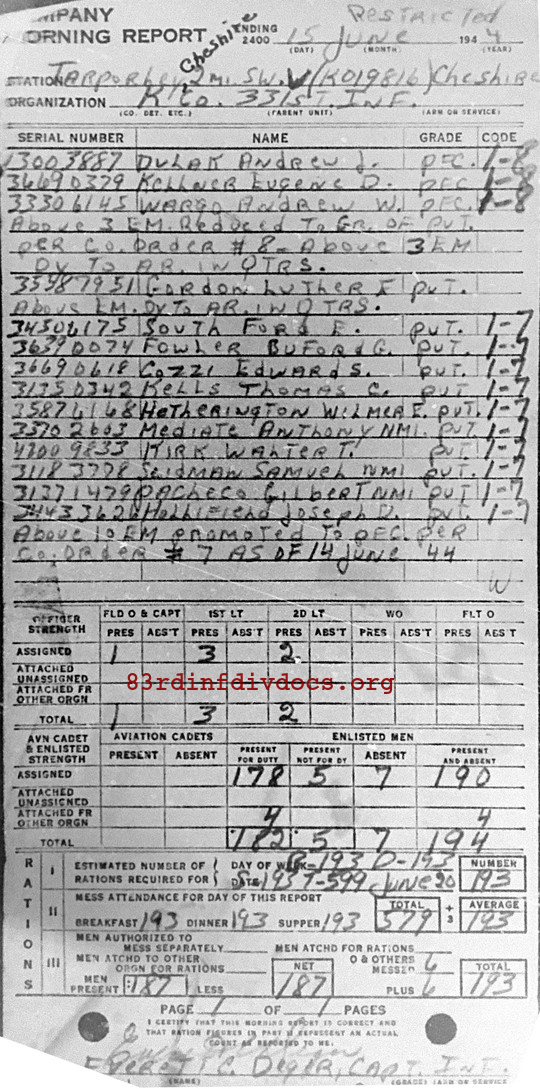 MPANY Restricted
ORNING REPORT ENDING 2400 15 June 1944
(DAY) (MONTH) (YEAR)
Cheshire
STATION Tarporley 2 mi. SW. (KO19816) Cheshire
ORGANIZATION K Co. 331ST. INF.
(CO. DET. ETC.) (PARENT UNIT) (ARM OR SERVICE)
SERIAL NUMBER NAME GRADE CODE
13003887 Dulak Andrew J. pfc. 1-8
36690379 Kellner Eugene D. pfc 1-8
33306145 Wargo Andrew W. pfc. 1-8
Above 3 EM. Reduced To Gr. OF pvt.
per Co. Order # 8 - Above 3 EM
Dy To A.R. in QTRS.
35587951 Gordon Luther F pvt.
Above EM. Dy To AR. in QTRS.
34506175 South Ford E. pvt. 1-7
36390074 Fowler Buford G. pvt. 1-7
36690618 Cozzi Edward S. pvt. 1-7
31350342 Kells Thomas C. pvt 1-7
35876168 Hetherington Wilmer E. pvt. 1-7
33702603 Mediate Anthony NMI. pvt. 1-7
42009833 Kirk Walter T. pvt 1-7
31183778 Seidman Samuel NMI pvt. 1-7
31371479 Pacheco Gilbert NMI pvt 1-7
34433628 Hollifield Joseph D. pvt 1-7
Above 10 EM promoted To pfc. per
Co. Order # 7 AS OF 14 June 44
W
OFFICER STRENGTH FLD O & CAPT 1ST LT 2D LT WO FLT O
PRES ABS'T PRES ABS'T PRES ABS'T PRES ABS'T PRES ABS'T
ASSIGNED 1 3 2
ATTACHED UNASSIGNED
83rdinfdivdocs.org
ATTACHED FR OTHER ORGN
TOTAL 1 3 2
AVN CADET & ENLISTED STRENGTH AVIATION CADETS ENLISTED MEN
PRESENT ABSENT PRESENT FOR DUTY PRESENT NOT FOR DY ABSENT PRESENT AND ABSENT
ASSIGNED 178 5 7 190
ATTACHED UNASSIGNED
ATTACHED FR OTHER ORGN 4 4
TOTAL 182 5 7 194
RATIONS
I ESTIMATED NUMBER OF RATIONS REQUIRED FOR { DAY OF WEEK B-193 D-193 NUMBER
DATE S-193 T-599 June 20 193
II MESS ATTENDANCE FOR DAY OF THIS REPORT TOTAL ÷ 3 AVERAGE
BREAKFAST 193 DINNER 193 SUPPER 193 579 193
III MEN AUTHORIZED TO MESS SEPARATELY MEN ATCHD FOR RATIONS
MEN ATCHD TO OTHER ORGN FOR RATIONS NET O & OTHERS MESSED 6 TOTAL
MEN PRESENT 187 LESS 187 PLUS 6 193
PAGE 1 OF 1 PAGES
I CERTIFY THAT THIS MORNING REPORT IS CORRECT AND
THAT RATION FIGURES IN PART II REPRESENT AN ACTUAL
COUNT AS REPORTED TO ME:
Everett C. Deger, Capt. Inf.
(NAME) (GRADE) (ARM OR SERVICE)